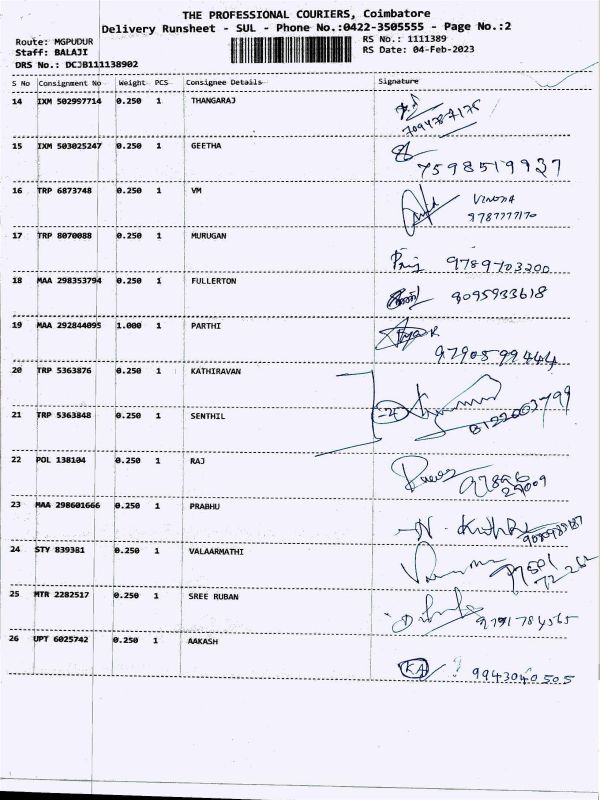 THE PROFESSIONAL COURIERS, Coimbatore
Delivery Runsheet - SUL - Phone No.:0422-3505555 - Page No.:2
Route: MGPUDUR RS No.: 1111389
Staff: BALAJI RS Date: 04-Feb-2023
DRS No.: DCJB111138902
S No Consignment No Weight PCS Consignee Details Signature
14 IXM 502997714 0.250 1 THANGARAJ
7094787175
15 IXM 503025247 0.250 1 GEETHA
7598519937
16 TRP 6873748 0.250 1 VM
9787777170
17 TRP 8070088 0.250 1 MURUGAN
9789703200
18 MAA 298353794 0.250 1 FULLERTON
8095933618
19 MAA 292844095 1.000 1 PARTHI
9790599444
20 TRP 5363876 0.250 1 KATHIRAVAN
21 TRP 5363848 0.250 1 SENTHIL
22 POL 138104 0.250 1 RAJ
23 MAA 298601666 0.250 1 PRABHU
24 STY 839381 0.250 1 VALAARMATHI
25 MTR 2282517 0.250 1 SREE RUBAN
9791784565
26 UPT 6025742 0.250 1 AAKASH
KA ? 9943040505